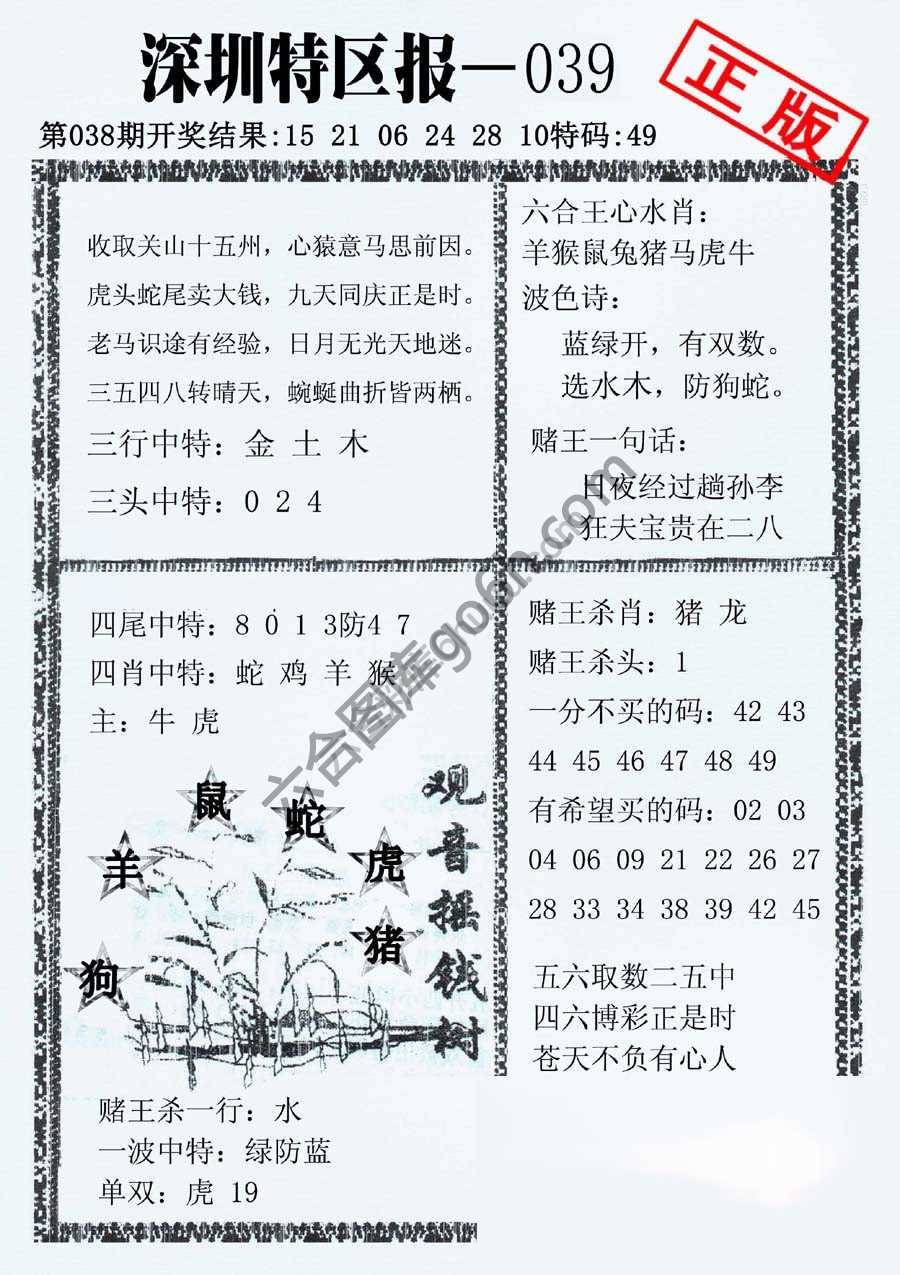 深圳特区报—039
正版
第038期开奖结果:15 21 06 24 28 10特码:49
收取关山十五州，心猿意马思前因。
虎头蛇尾卖大钱，九天同庆正是时。
老马识途有经验，日月无光天地迷。
三五四八转晴天，蜿蜒曲折皆两栖。
三行中特：金 土 木
三头中特：0 2 4
六合王心水肖：
羊猴鼠兔猪马虎牛
波色诗：
蓝绿开，有双数。
选水木，防狗蛇。
赌王一句话：
日夜经过趟孙李
狂夫宝贵在二八
四尾中特：8 0 1 3防4 7
四肖中特：蛇 鸡 羊 猴
主：牛 虎
鼠
蛇
羊
虎
猪
狗
观音摇钱树
赌王杀一行：水
一波中特：绿防蓝
单双：虎 19
赌王杀肖：猪 龙
赌王杀头：1
一分不买的码：42 43
44 45 46 47 48 49
有希望买的码：02 03
04 06 09 21 22 26 27
28 33 34 38 39 42 45
五六取数二五中
四六博彩正是时
苍天不负有心人